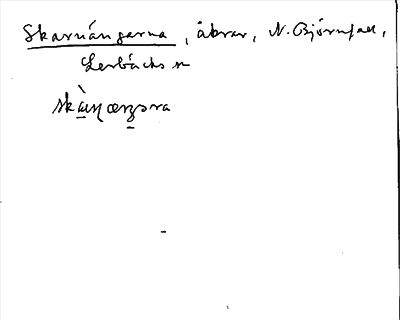 Skarnängarna, åkrar, N. Björnfall,
Lerbäcks sn
skàɳæŋəra